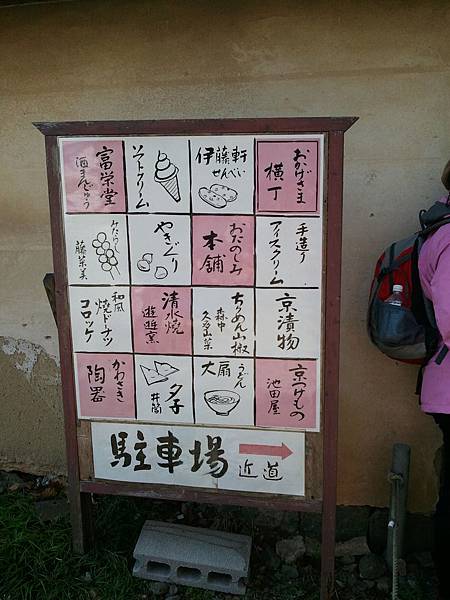 おかげさま
横丁
伊藤軒
せんべい
ソフトクリーム
富栄堂
酒まんじゅう
手造り
アイスクリーム
おたのしみ
本舗
やきぐり
みたらし
藤菜美
京漬物
ちりめん山椒
清水焼
遊遊窯
和風
焼ドーナツ
コロッケ
京つけもの
池田屋
大扇
うどん
夕子
井筒
かわさき
陶器
駐車場
近道